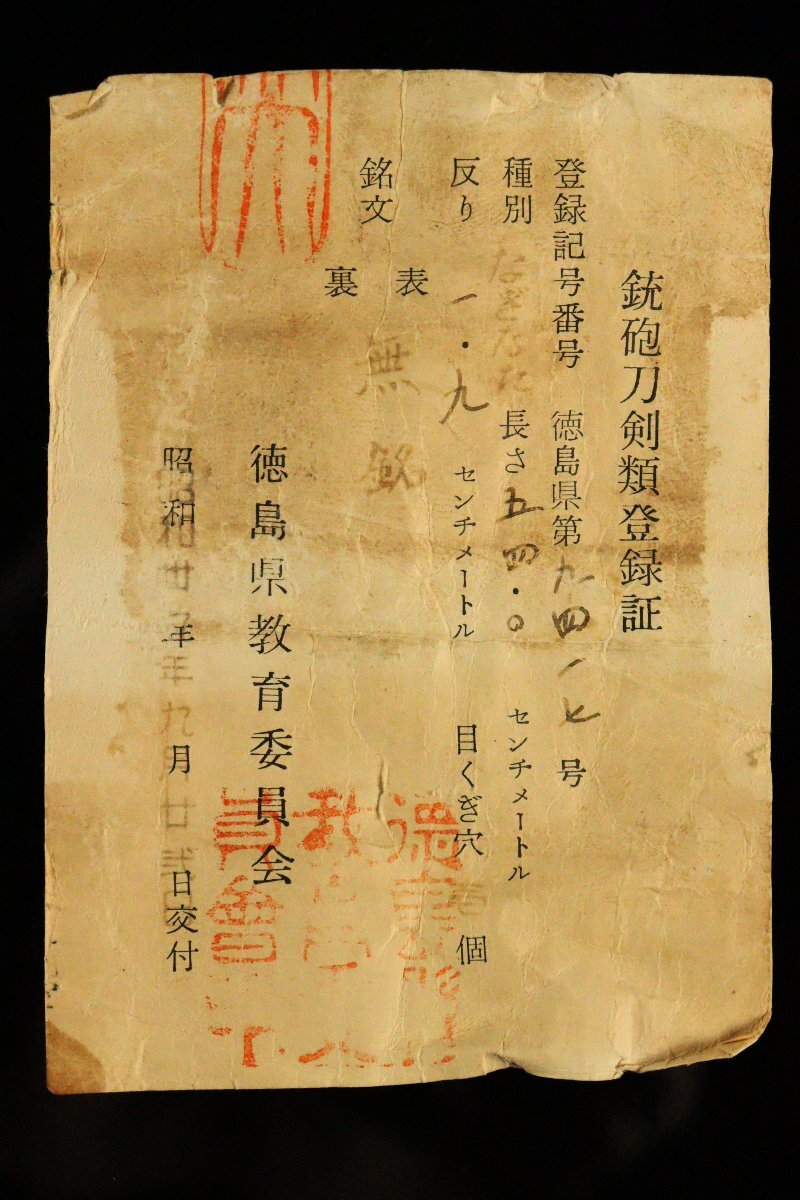 銃砲刀剣類登録証
登録記号番号 徳島県第九四一七号
種別 なぎなた 長さ五四・〇センチメートル
反り 一・九 センチメートル 目くぎ穴 壱 個
銘文 表 無銘
裏
徳島県教育委員会
昭和廿 年九月廿弐日交付